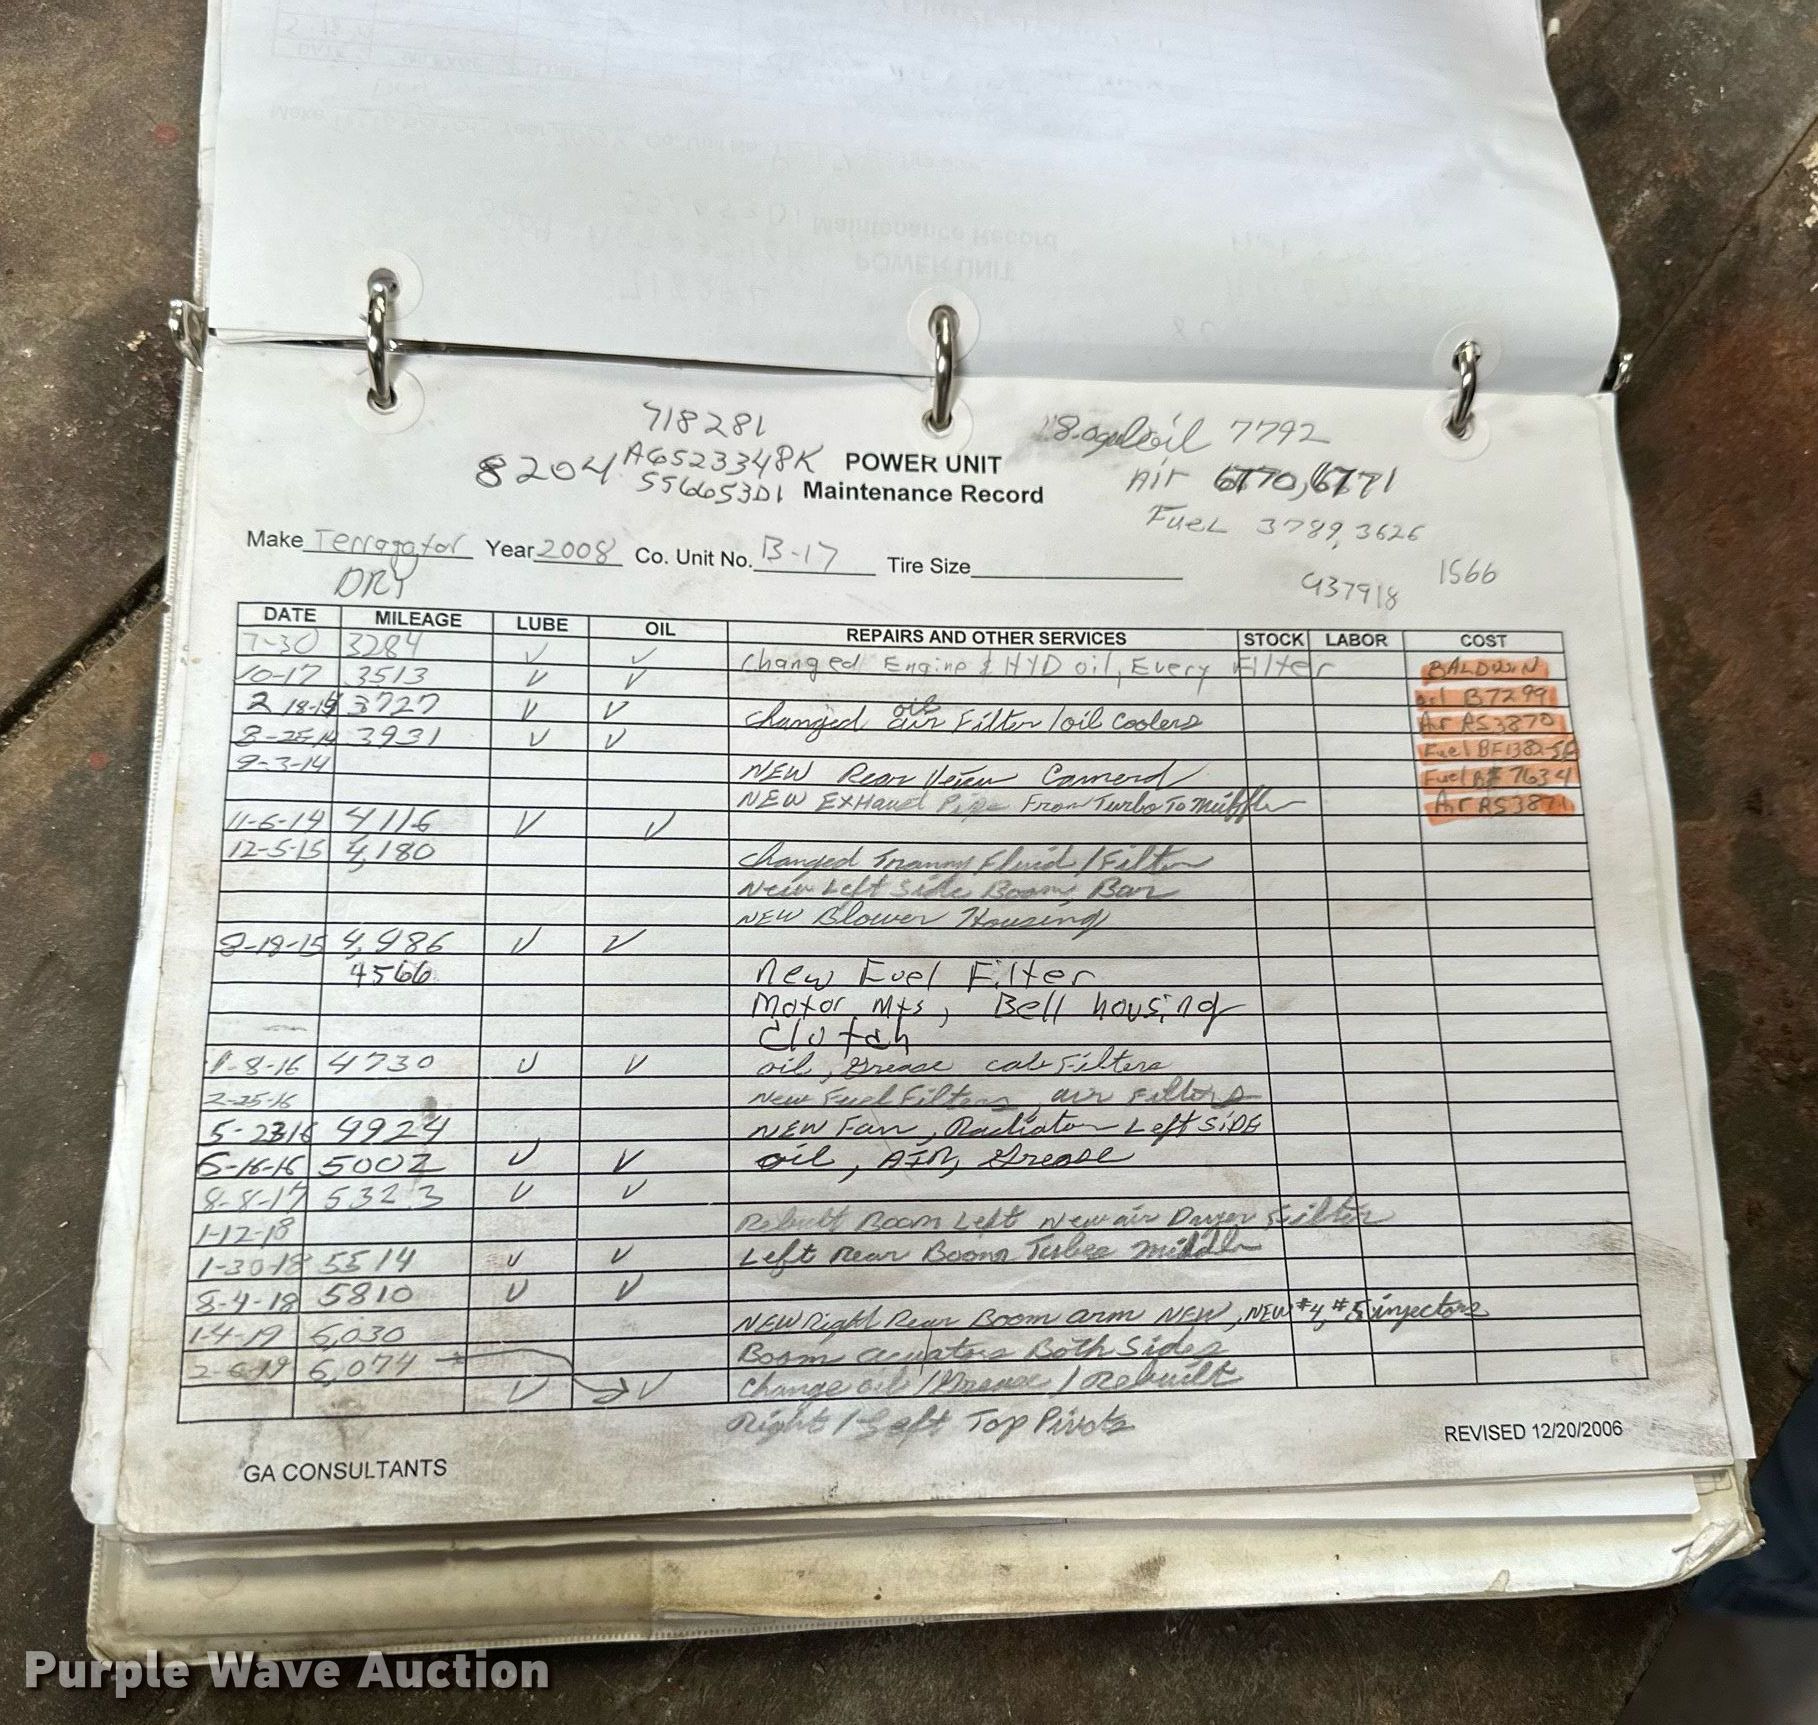 718281
8204 AG523348K POWER UNIT
556653D1 Maintenance Record
oil 7792
Air 6770, 6771
Fuel 3789, 3626
1566
437918
Make Terragator Year 2008 Co. Unit No. B-17 Tire Size
DRY
DATE MILEAGE LUBE OIL REPAIRS AND OTHER SERVICES STOCK LABOR COST
7-30 3284 ✓ ✓ Changed Engine & HYD oil, Every Filter BALDWIN
10-17 3513 ✓ ✓ oil B7299
2 18-14 3727 ✓ ✓ Changed oil air Filter / oil Coolers Air RS3870
8-25-14 3931 ✓ ✓ Fuel BF1382-SP
9-3-14 NEW Rear View Camera Fuel BF 7634
NEW EXHaust Pipe From Turbo To muffler Air RS3871
11-6-14 4116 ✓ ✓
12-5-15 4,180 Changed Tranny Fluid / Filter
New Left Side Boom, Bar
NEW Blower Housing
8-18-15 4,486 ✓ ✓
4566 New Fuel Filter
Motor Mts, Bell housing
Clutch
1-8-16 4730 ✓ ✓ oil, Grease cab Filters
2-25-16 New Fuel Filters, air Filters
5-23-16 4924 NEW Fan, Radiator Left SIDE
6-16-16 5002 ✓ ✓ oil, AIR, Grease
8-8-17 5323 ✓ ✓
1-12-18 Rebuilt Boom Left New air Dryer Filter
1-30-18 5514 ✓ ✓ Left Rear Boom Tubes middle
8-4-18 5810 ✓ ✓
1-4-19 6,030 NEW Right Rear Boom arm NEW, NEW #4, #5 injectors
2-6-19 6,074 Boom acuators Both Sides
✓ ✓ Change oil / Grease / Rebuilt
Right / Left Top Pivots
REVISED 12/20/2006
GA CONSULTANTS
Purple Wave Auction